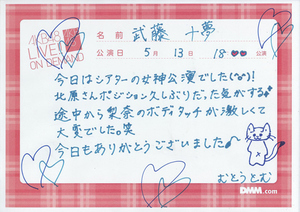 AKB48
LIVE!!
ON DEMAND
名前 武藤 十夢
公演日 5月13日 18:00 公演
今日はシアターの女神公演でした(''▽'')!
北原さんポジション久しぶりだった気がする
途中から梨奈のボディタッチが激しくて
大変でした。笑
今日もありがとうございました
むとうとむ
DMM.com